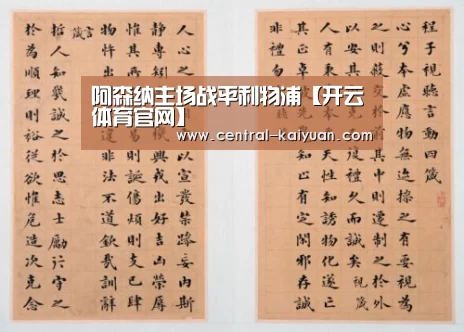 程子視聽言動四箴
心兮本虛應物無迹操之有要視為
之則蔽交於前其中則遷制之於外
以安其復禮久而誠矣 視箴
人有秉天性知誘物化遂亡
其正卓先知止有定閑邪存誠
非禮勿
人心之以宣發禁躁妄內斯
靜專興戎出好吉凶榮辱
惟其則誕傷煩則支己肆
物忤出違非法不道欽哉訓辭
言箴
哲人知幾誠之於思志士勵行守之
於為順理則裕從欲惟危造次克念
阿森纳主场战平利物浦【开云
体育官网】
www.central-kaiyuan.com